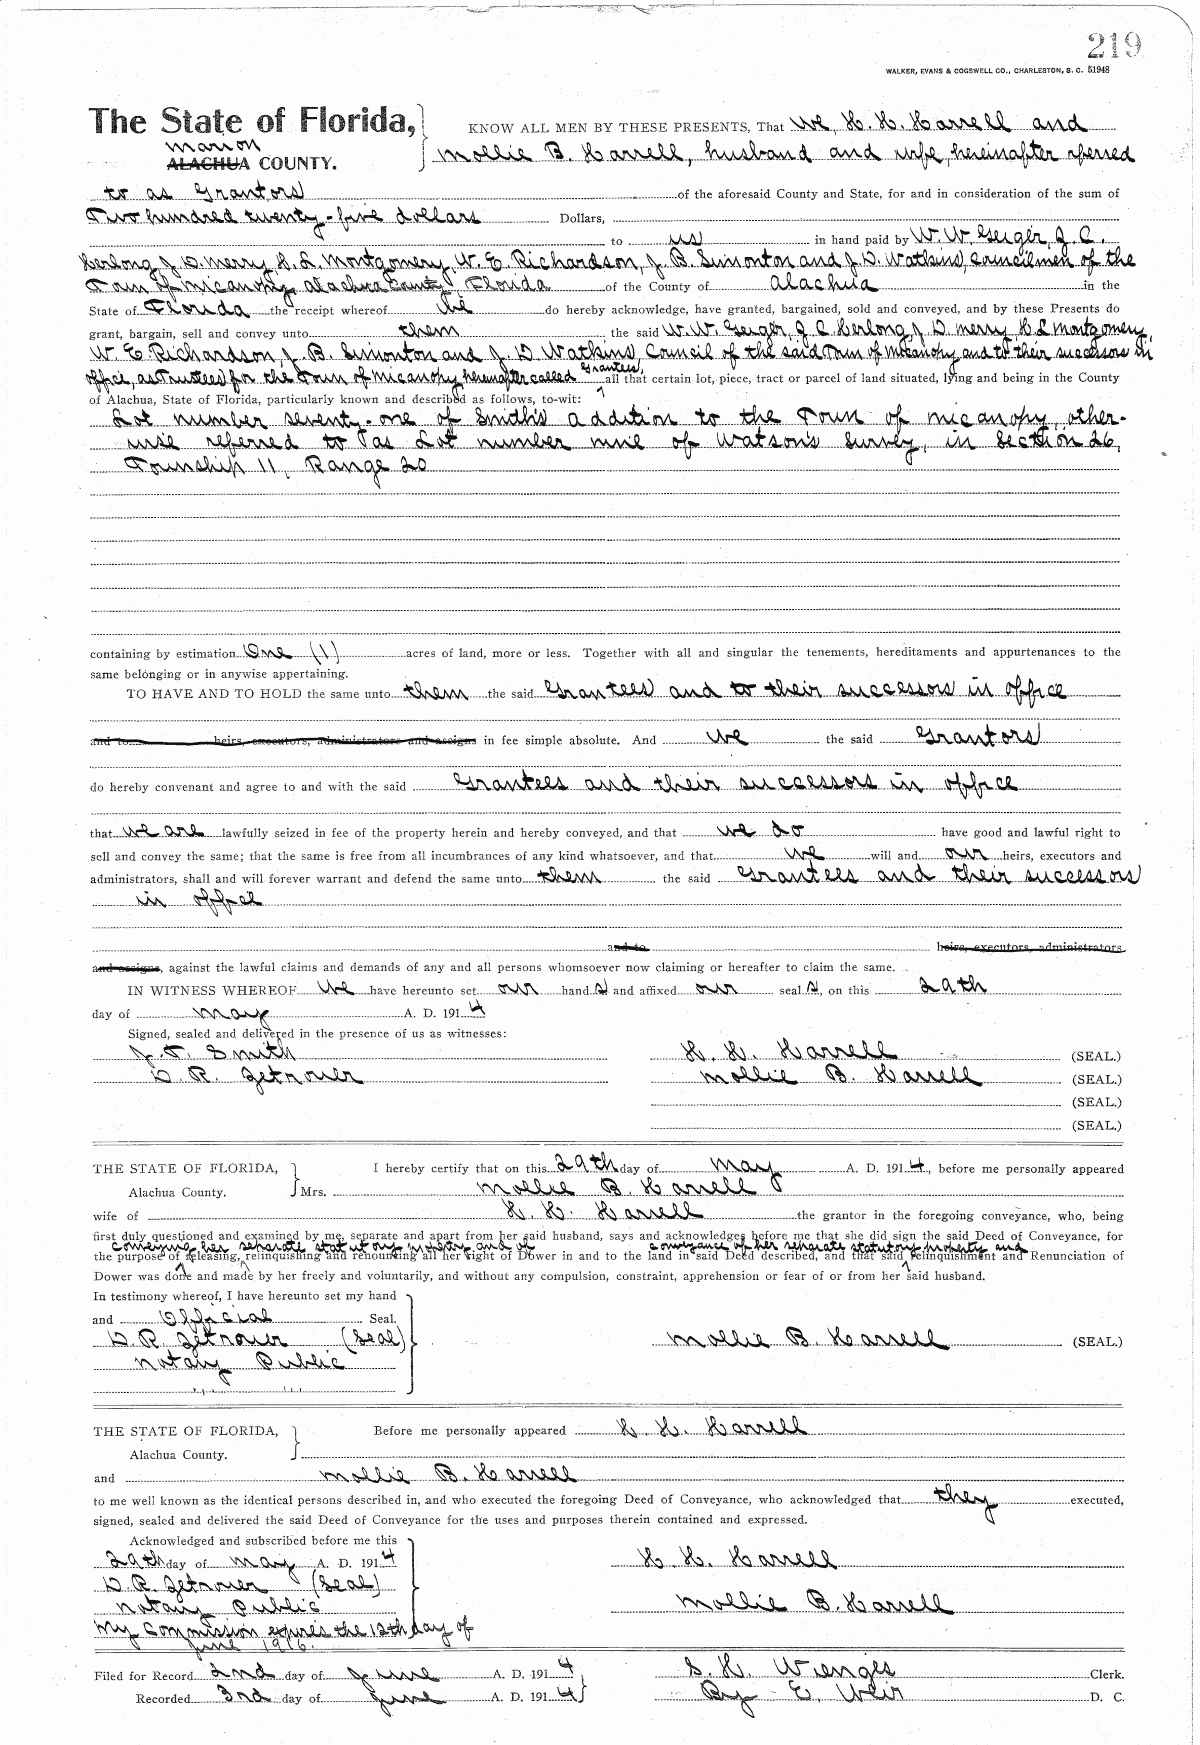 219
WALKER, EVANS & COGSWELL CO., CHARLESTON, S. C. 51948
The State of Florida, KNOW ALL MEN BY THESE PRESENTS, That We, H. H. Harrell and
Marion
ALACHUA COUNTY. Mollie B. Harrell, husband and wife, hereinafter referred
to as Grantors of the aforesaid County and State, for and in consideration of the sum of
Two hundred twenty-five dollars Dollars,
to us in hand paid by W. W. Geiger, J. C.
Herlong J. D. Merry, H. L. Montgomery, W. E. Richardson, J. B. Simonton and J. D. Watkins, Councilmen of the
Town of Micanopy, Alachua County, Florida of the County of Alachua in the
State of Florida the receipt whereof we do hereby acknowledge, have granted, bargained, sold and conveyed, and by these Presents do
grant, bargain, sell and convey unto them the said W. W. Geiger, J. C. Herlong, J. D. Merry, H. L. Montgomery,
W. E. Richardson, J. B. Simonton and J. D. Watkins, Council of the said Town of Micanopy and to their successors in
office, as Trustees for the Town of Micanopy hereinafter called Grantees, all that certain lot, piece, tract or parcel of land situated, lying and being in the County
of Alachua, State of Florida, particularly known and described as follows, to-wit:
Lot number seventy-one of Smith's addition to the Town of Micanopy, other-
wise referred to as Lot number nine of Watson's Survey, in Section 26,
Township 11, Range 20
containing by estimation One (1) acres of land, more or less. Together with all and singular the tenements, hereditaments and appurtenances to the
same belonging or in anywise appertaining.
TO HAVE AND TO HOLD the same unto them the said Grantees and to their successors in office
and to heirs, executors, administrators and assigns in fee simple absolute. And we the said Grantors
do hereby convenant and agree to and with the said Grantees and their successors in office
that we are lawfully seized in fee of the property herein and hereby conveyed, and that we do have good and lawful right to
sell and convey the same; that the same is free from all incumbrances of any kind whatsoever, and that we will and our heirs, executors and
administrators, shall and will forever warrant and defend the same unto them the said Grantees and their successors
in office
and to heirs, executors, administrators
and assigns, against the lawful claims and demands of any and all persons whomsoever now claiming or hereafter to claim the same.
IN WITNESS WHEREOF We have hereunto set our hand s and affixed our seal s, on this 29th
day of May A. D. 1914
Signed, sealed and delivered in the presence of us as witnesses:
J. T. Smith H. H. Harrell (SEAL.)
D. R. Zetrouer Mollie B. Harrell (SEAL.)
(SEAL.)
(SEAL.)
THE STATE OF FLORIDA, I hereby certify that on this 29th day of May A. D. 1914, before me personally appeared
Alachua County. Mrs. Mollie B. Harrell
wife of H. H. Harrell the grantor in the foregoing conveyance, who, being
first duly questioned and examined by me, separate and apart from her said husband, says and acknowledges before me that she did sign the said Deed of Conveyance, for
conveying her separate statutory property and of conveyance of her separate statutory property and
the purpose of releasing, relinquishing and renouncing all her right of Dower in and to the land in said Deed described, and that said relinquishment and Renunciation of
Dower was done and made by her freely and voluntarily, and without any compulsion, constraint, apprehension or fear of or from her said husband.
In testimony whereof, I have hereunto set my hand
and Official Seal.
D. R. Zetrouer (Seal) Mollie B. Harrell (SEAL.)
Notary Public
THE STATE OF FLORIDA, Before me personally appeared H. H. Harrell
Alachua County.
and Mollie B. Harrell
to me well known as the identical persons described in, and who executed the foregoing Deed of Conveyance, who acknowledged that they executed,
signed, sealed and delivered the said Deed of Conveyance for the uses and purposes therein contained and expressed.
Acknowledged and subscribed before me this
29th day of May A. D. 1914 H. H. Harrell
D. R. Zetrouer (Seal)
Notary Public Mollie B. Harrell
My Commission expires the 12th day of
June 1916.
Filed for Record 2nd day of June A. D. 1914 S. H. Wienges Clerk.
Recorded 3rd day of June A. D. 1914 By E. Weir D. C.